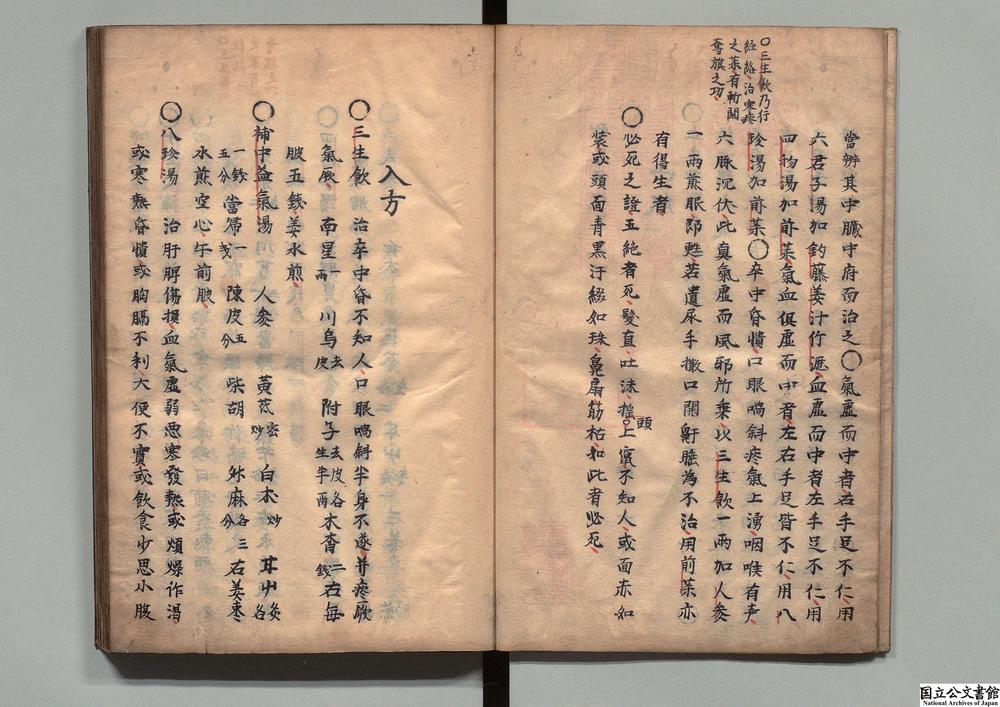 〇三生飲乃行
経絡治寒痰
之薬有斬関
奪旗之功
當辨其中臓中府而治之〇氣虚而中者右手足不仁用
六君子湯加釣藤姜汁竹瀝血虚而中者左手足不仁用
四物湯加前薬氣血倶虚而中者左右手足皆不仁用八
珍湯加前薬〇卒中昏憒口眼喎斜痰氣上湧咽喉有声
六脉沉伏此真氣虚而風邪所乗以三生飲一両加人参
一両煎服即甦若遺尿手撒口開鼾睡為不治用前薬亦
有得生者
〇必死之證五絶者死髪直吐沫揺上竄不知人或面赤如
頭
装或頭面青黒汗綴如珠臭扁筋枯如此者必死
入方
〇三生飲 治卒中昏不知人口眼喎斜半身不遂并痰厥
氣厥 南星一両 川烏去皮 附子去皮各生半両 木香二銭 右毎
服五銭姜水煎
〇補中益氣湯 人参 黄芪密炒 白朮炒 甘草炙各
一銭五分 當帰一戔 陳皮五分 柴胡 升麻各三分 右姜棗
水煎空心午前服
〇八珍湯 治肝脾傷損血氣虚弱悪寒發熱或煩燥作渇
或寒熱昏憒或胸膈不利大便不實或飲食少思小腹
国立公文書館
National Archives of Japan